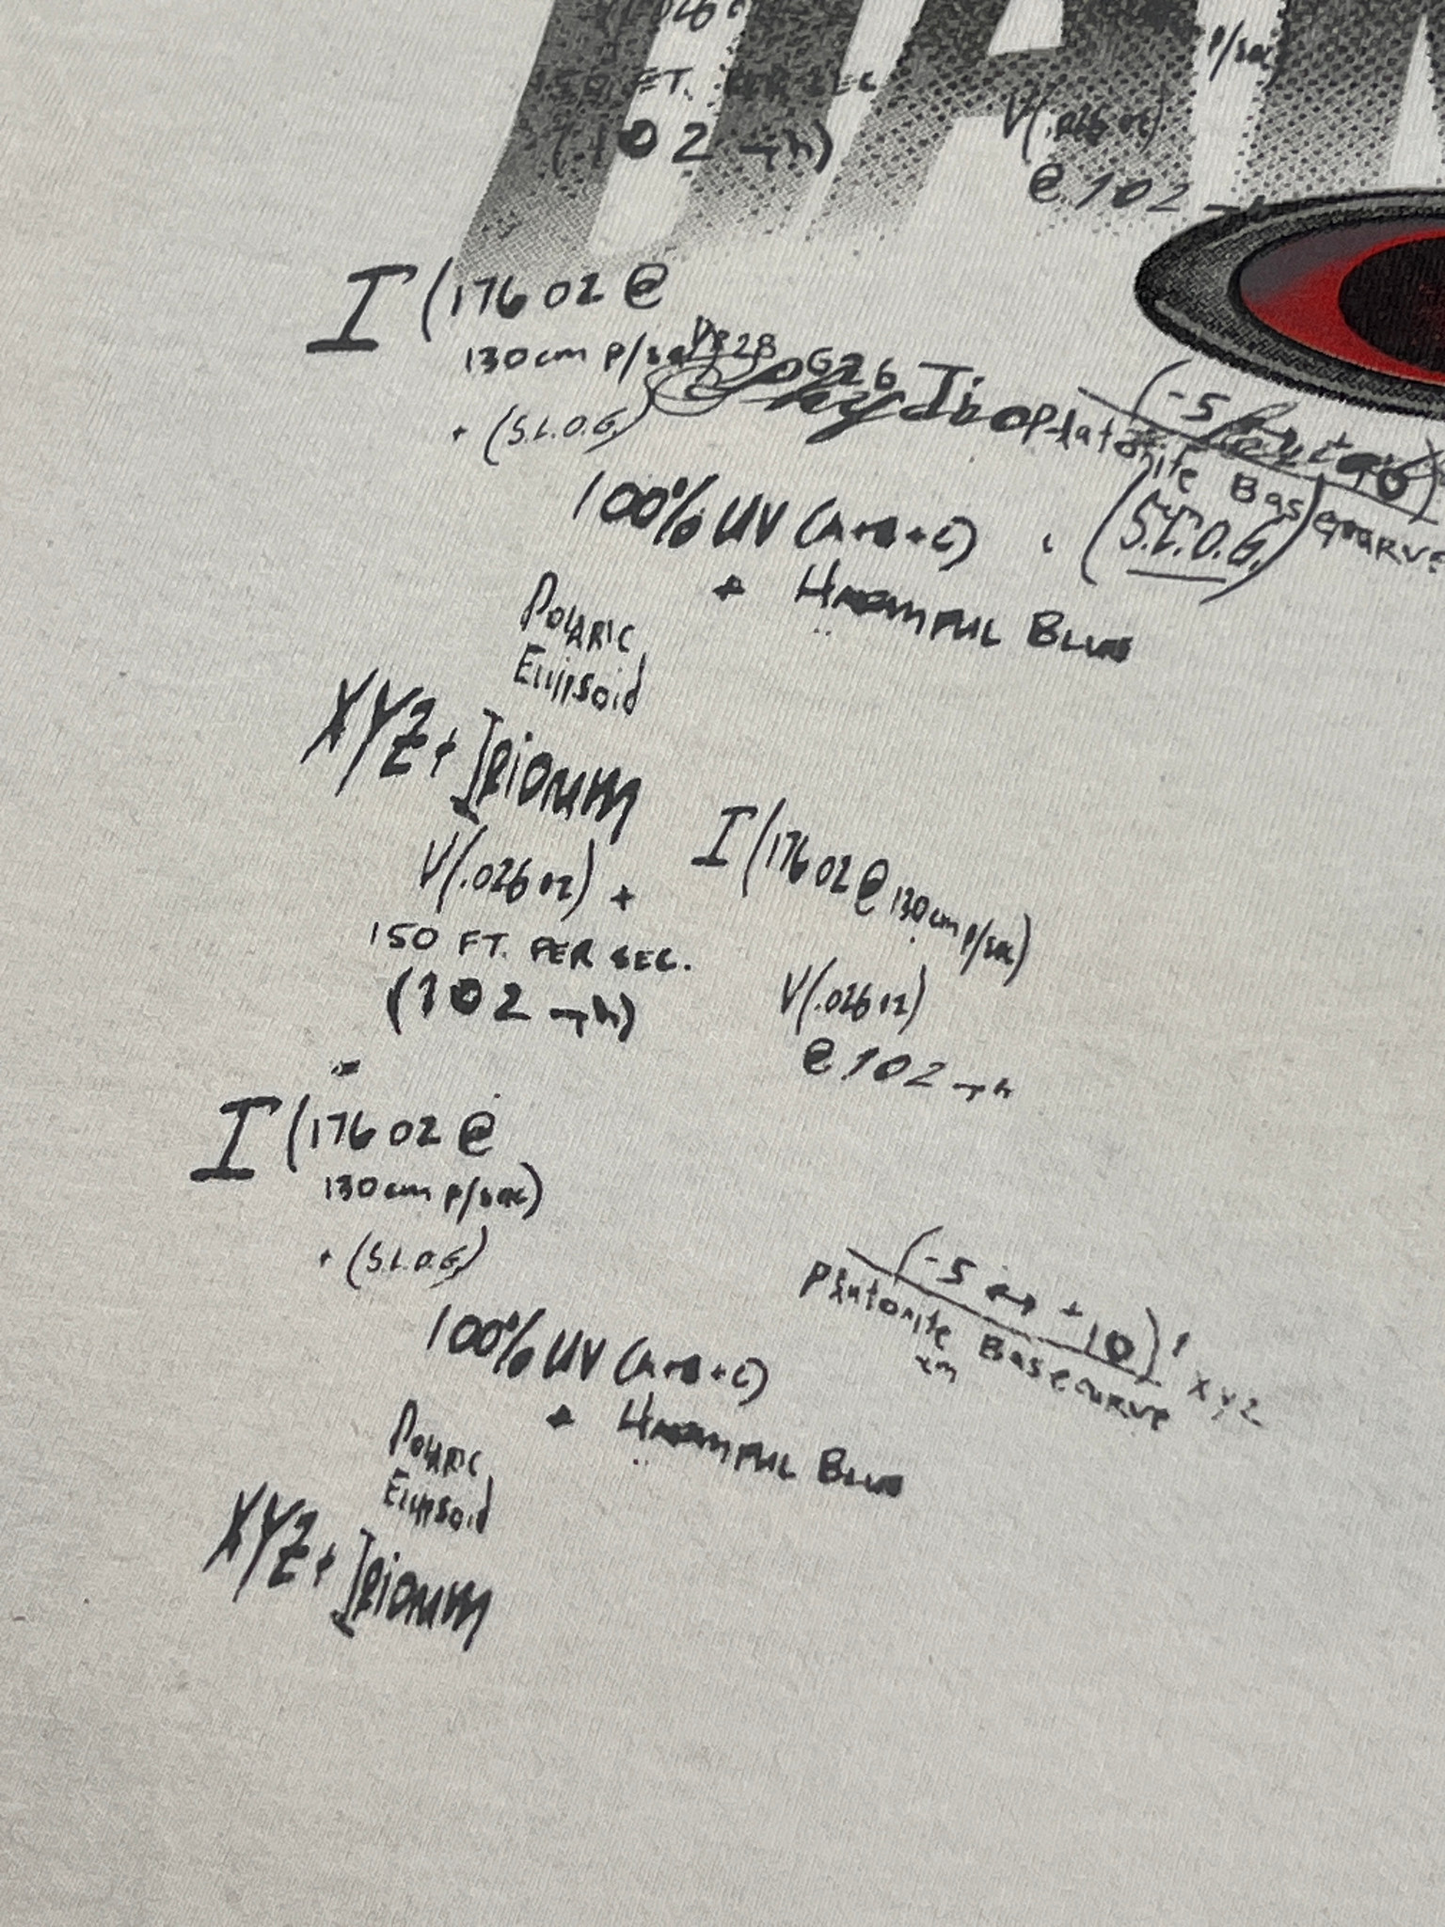 150 FT. PER SEC
(102 mph)
p/sec)
V(.026 oz)
@ 102 mph
I (176 oz @
130cm p/sec
+ (S.L.O.G.)
(-5
Plutonite Basecurve
(S.L.O.G.)
100% UV (A+B+C)
+ Harmful Blue
Polaric
Ellipsoid
XYZ + Iridium
V(.026 oz) +
150 FT. PER SEC.
(102 mph)
=
I (176 oz @ 130cm p/sec)
V(.026 oz)
@ 102 mph
I (176 oz @
130cm p/sec)
+ (S.L.O.G)
(-5 ↔ +10)
Plutonite Basecurve
XYZ
100% UV (A+B+C)
+ Harmful Blue
Polaric
Ellipsoid
XYZ + Iridium